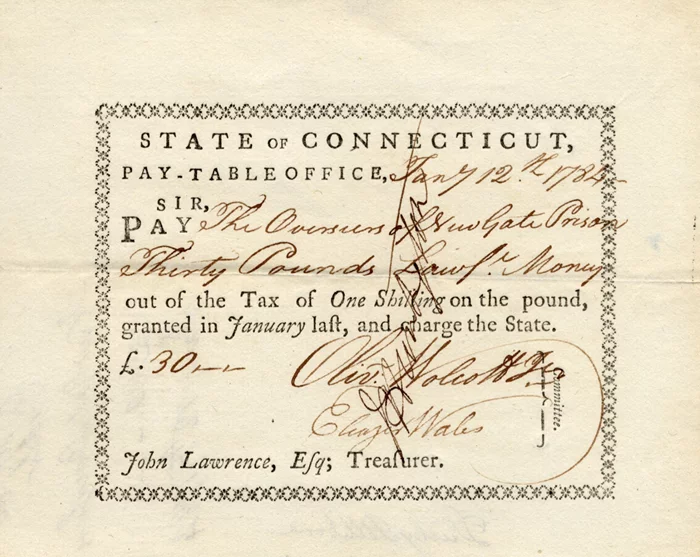 STATE OF CONNECTICUT,
PAY-TABLE OFFICE, Jany 12th 1784
SIR,
PAY The Overseers of New Gate Prison
Thirty Pounds Lawfl Money
out of the Tax of One Shilling on the pound,
granted in January laſt, and charge the State.
£. 30
Olivr Wolcott Jr
Committee.
Eleazer Wales
John Lawrence, Eſq; Treaſurer.